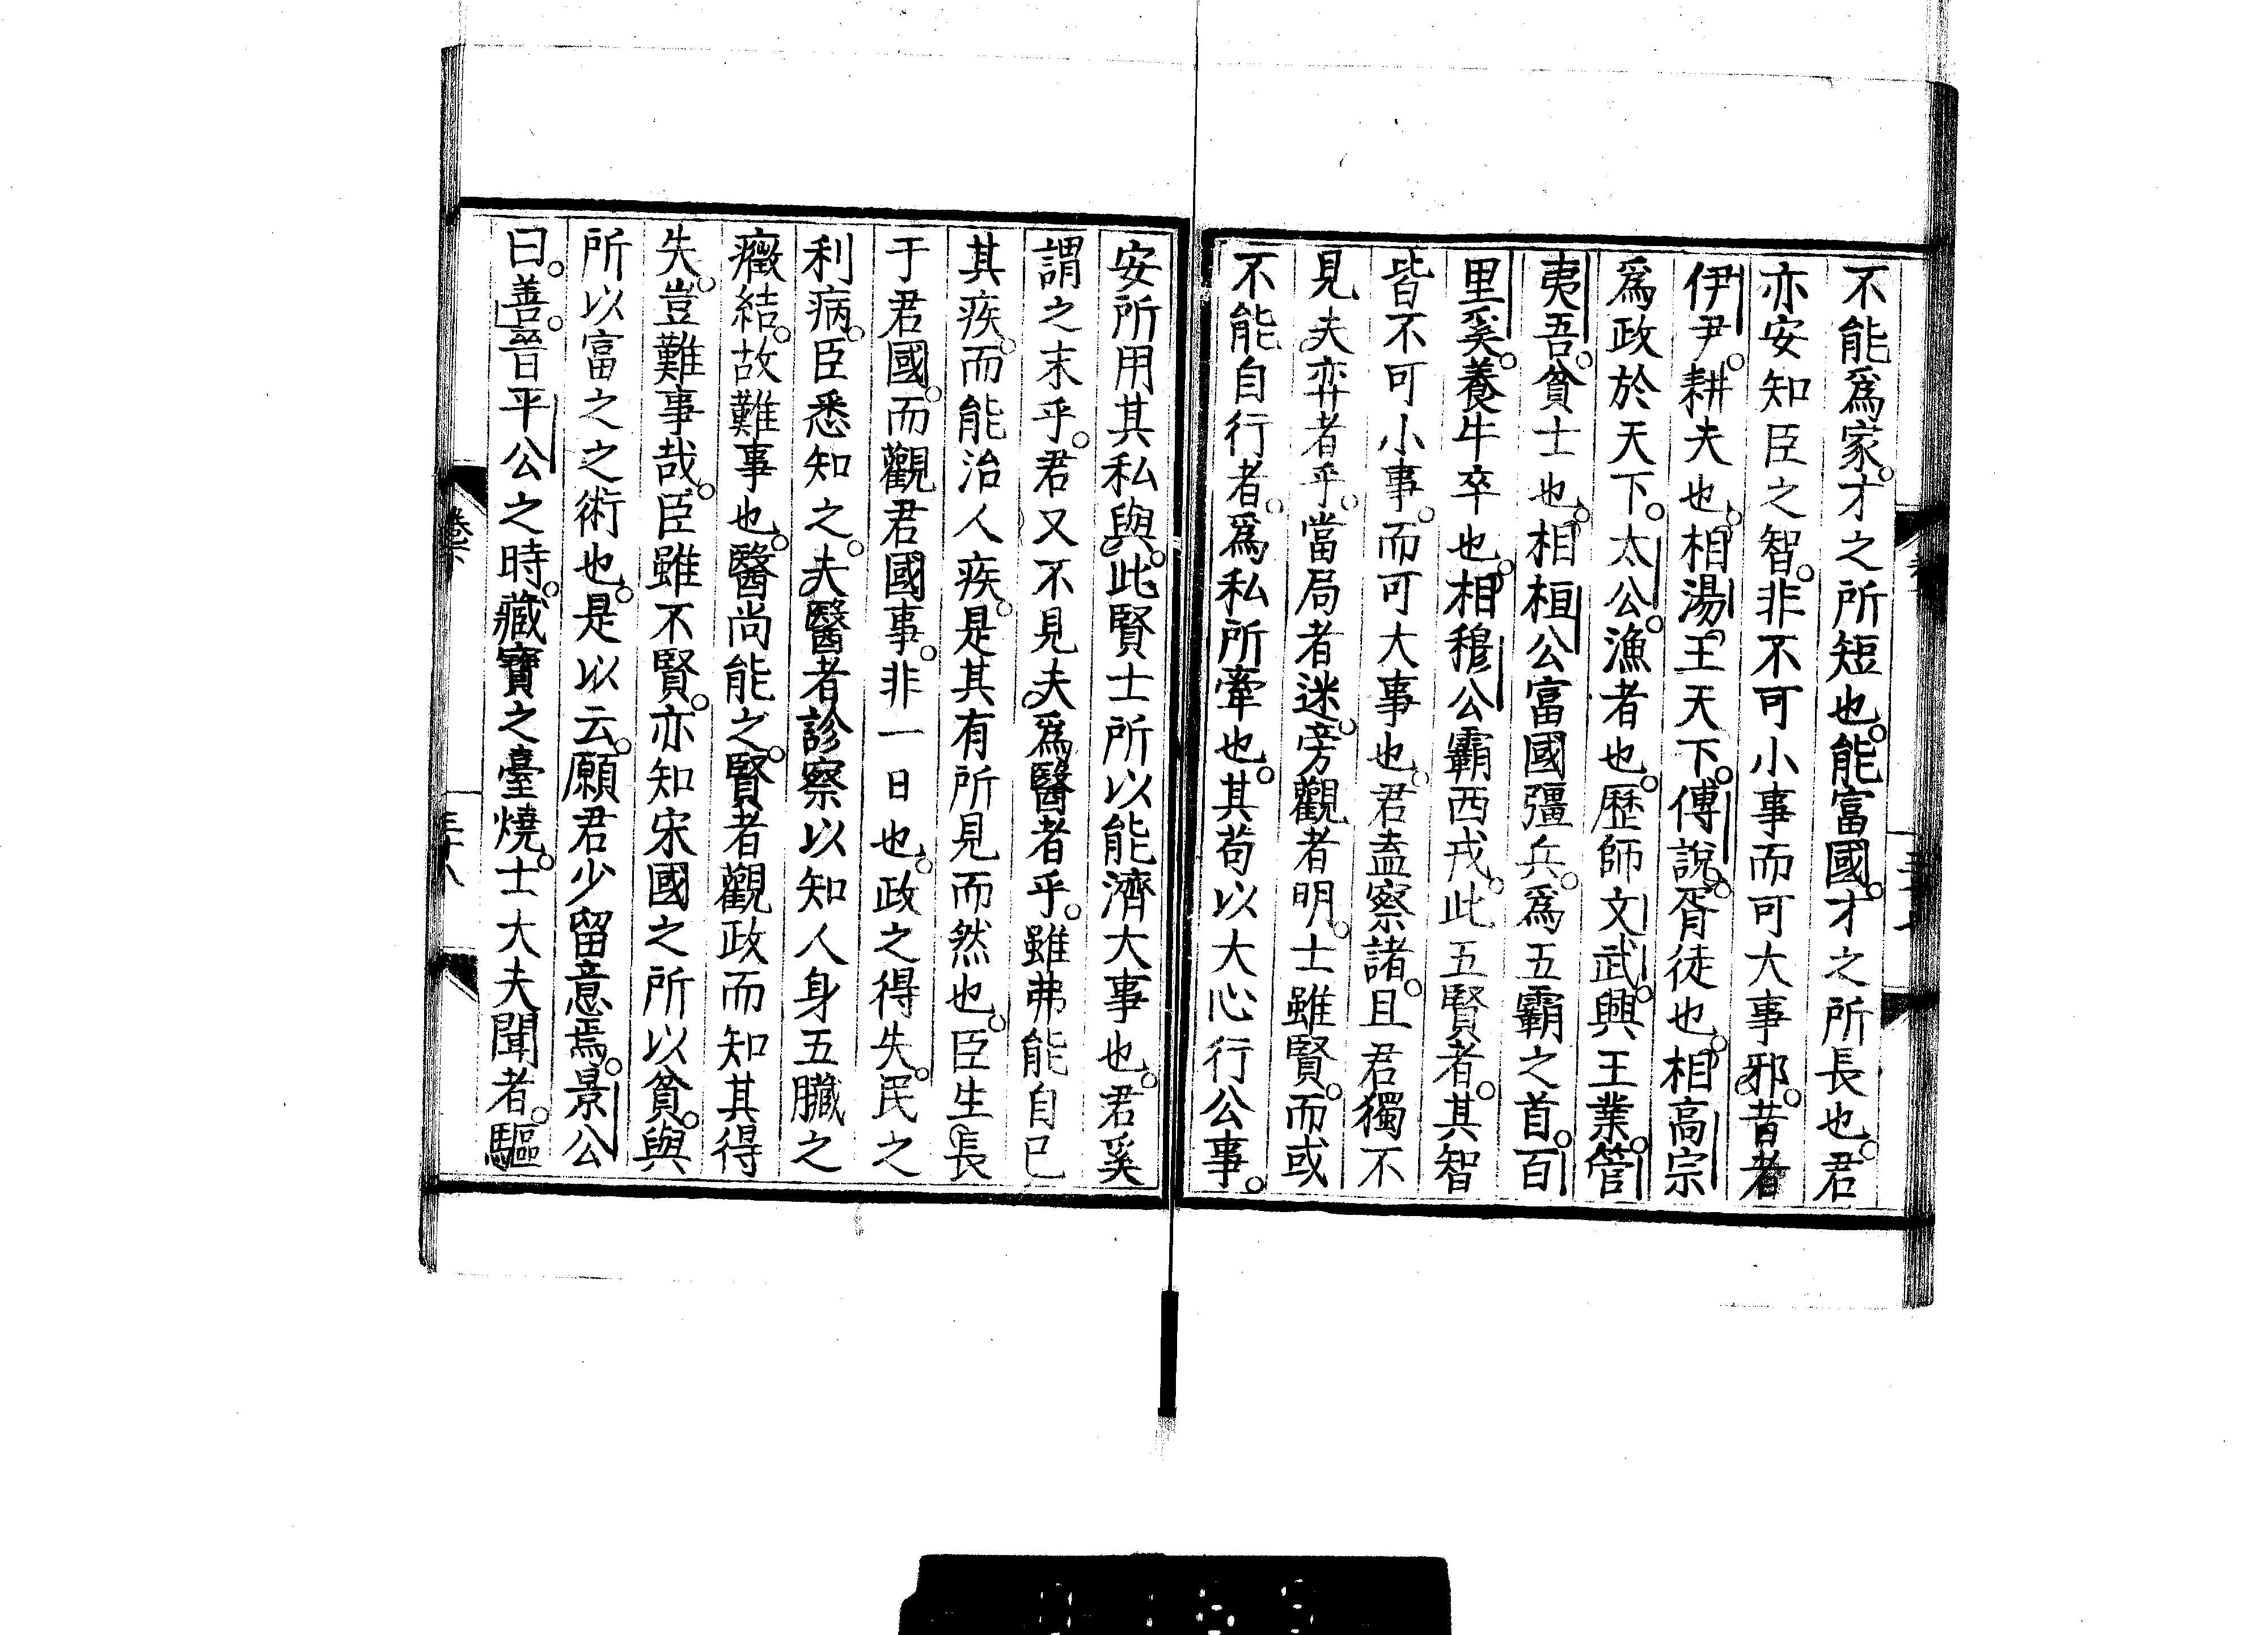 不能爲家。才之所短也。能富國。才之所長也。君
亦安知臣之智。非不可小事而可大事邪。昔者
伊尹。耕夫也。相湯王天下。傅說。胥徒也。相高宗
爲政於天下。太公。漁者也。歷師文武。興王業。管
夷吾。貧士也。相桓公富國彊兵。爲五霸之首。百
里奚。養牛卒也。相穆公霸西戎。此五賢者。其智
皆不可小事。而可大事也。君盍察諸。且君獨不
見夫弈者乎。當局者迷。旁觀者明。士雖賢。而或
不能自行者。爲私所牽也。其苟以大心行公事。
安所用其私與。此賢士所以能濟大事也。君奚
謂之末乎。君又不見夫爲醫者乎。雖弗能自已
其疾。而能治人疾。是其有所見而然也。臣生長
于君國。而觀君國事。非一日也。政之得失。民之
利病。臣悉知之。夫醫者診察以知人身五臟之
癥結。故難事也。醫尚能之。賢者觀政而知其得
失。豈難事哉。臣雖不賢。亦知宋國之所以貧。與
所以富之之術也。是以云。願君少留意焉。景公
曰。善。晉平公之時。藏寶之臺燒。士大夫聞者。驅